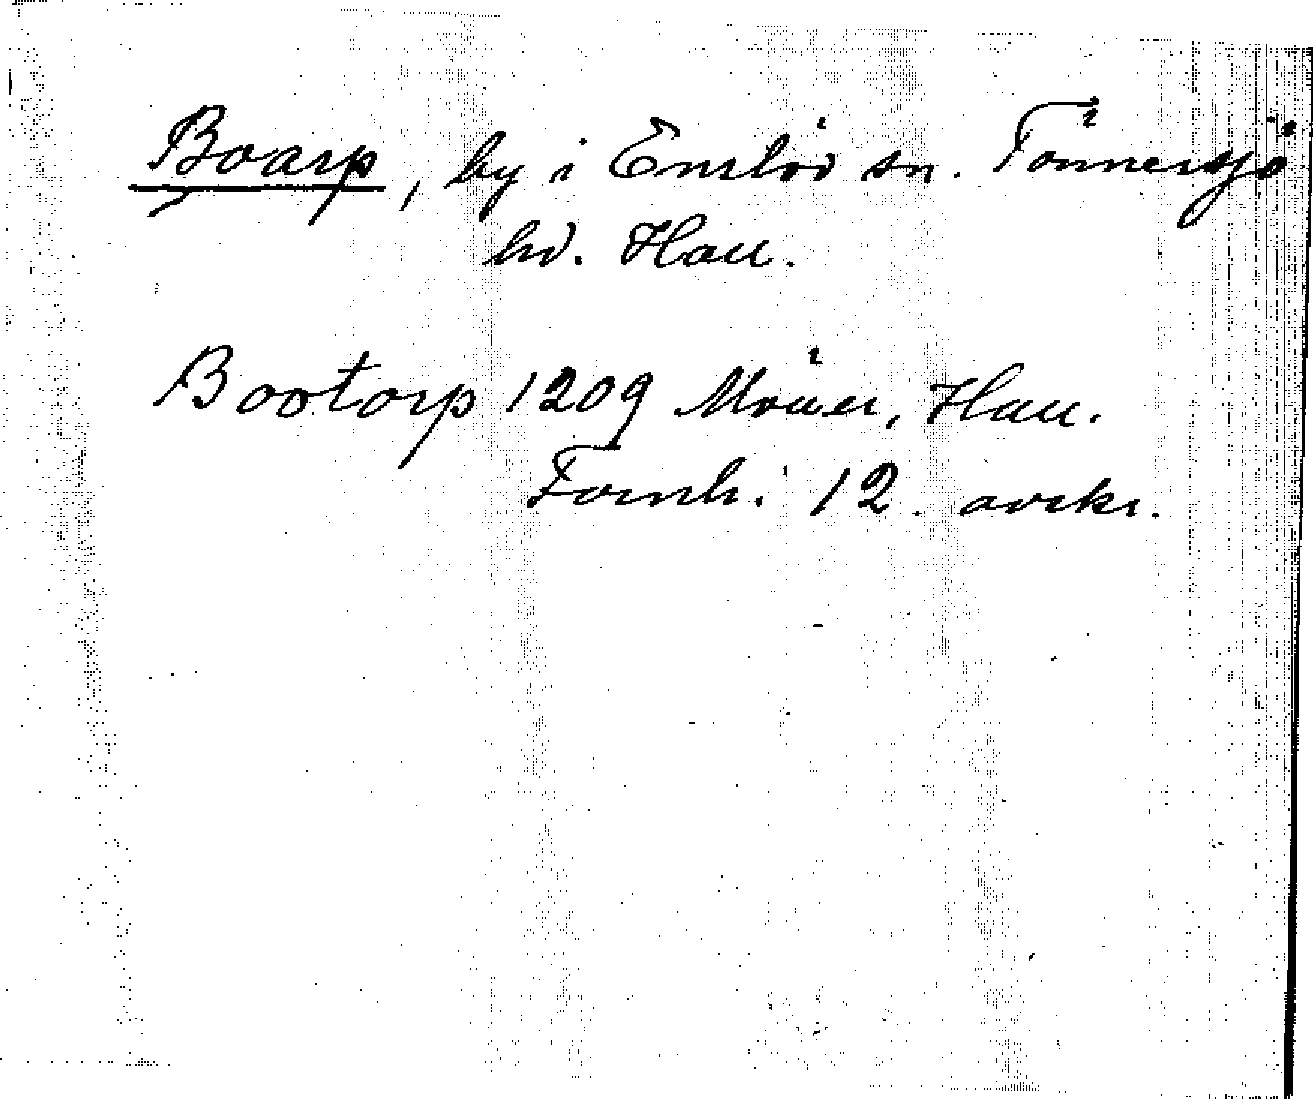 Boarp, by i Enslöv sn. Tönnersjö
hd. Hall.
Bootorp 1209 Möller, Hall.
Fornh. 12. avskr.